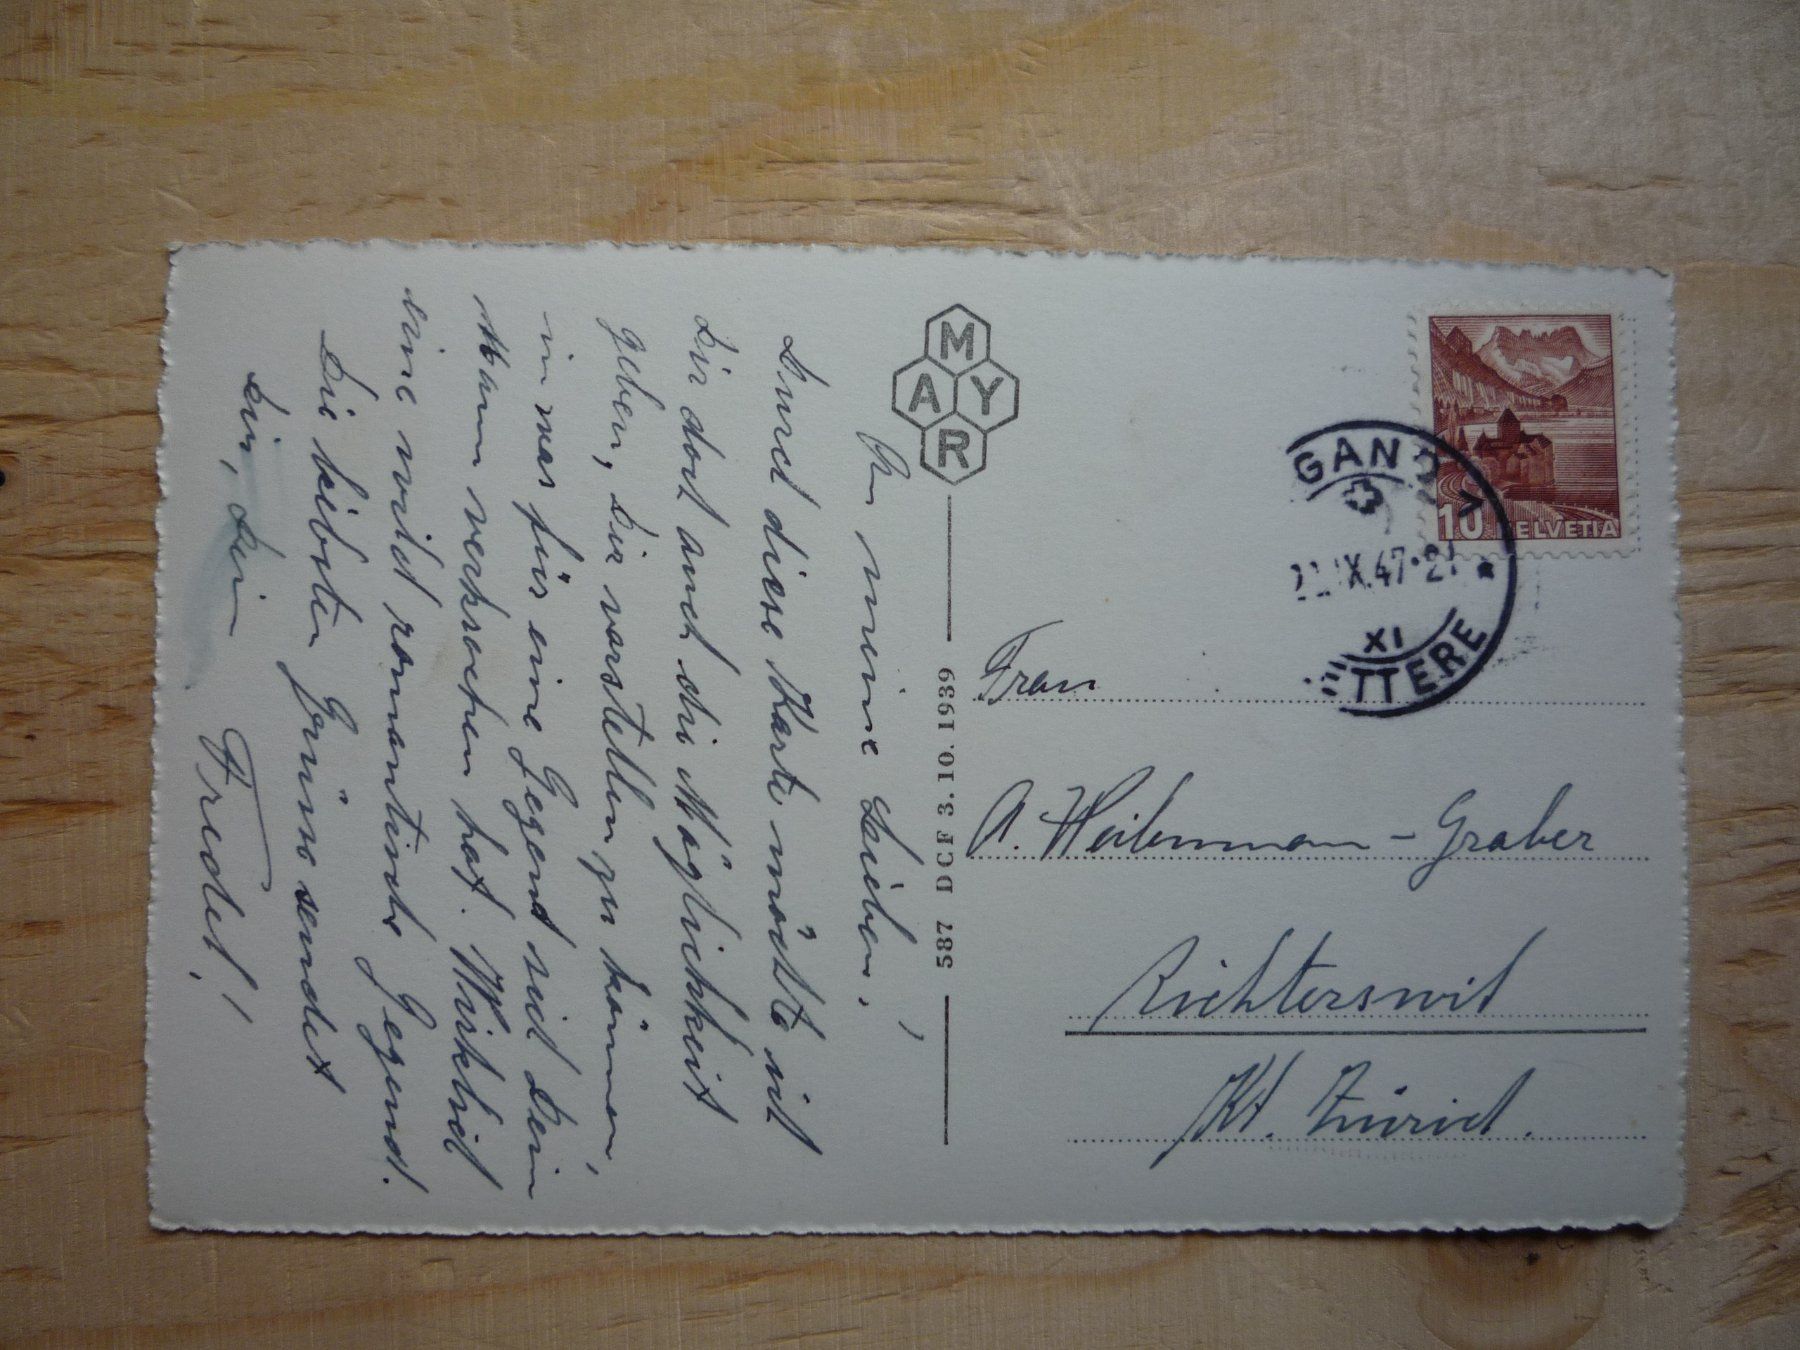 An meine Lieben,
Durch diese Karte möchte ich
Dir doch auch die Möglichkeit
geben, Dir vorstellen zu können,
in was für eine Gegend sich Dein
Mann verkrochen hat. Wirklich
eine wild romantische Gegend.
Die liebsten Grüsse sendet
Dir, Dein
Fredel!
MAYR
587 DCF 3.10.1939
10 HELVETIA
GAND
IX.47·21
XI
ETTERE
Frau
A. Heilemann-Graber
Richterswil
Kt. Zürich.